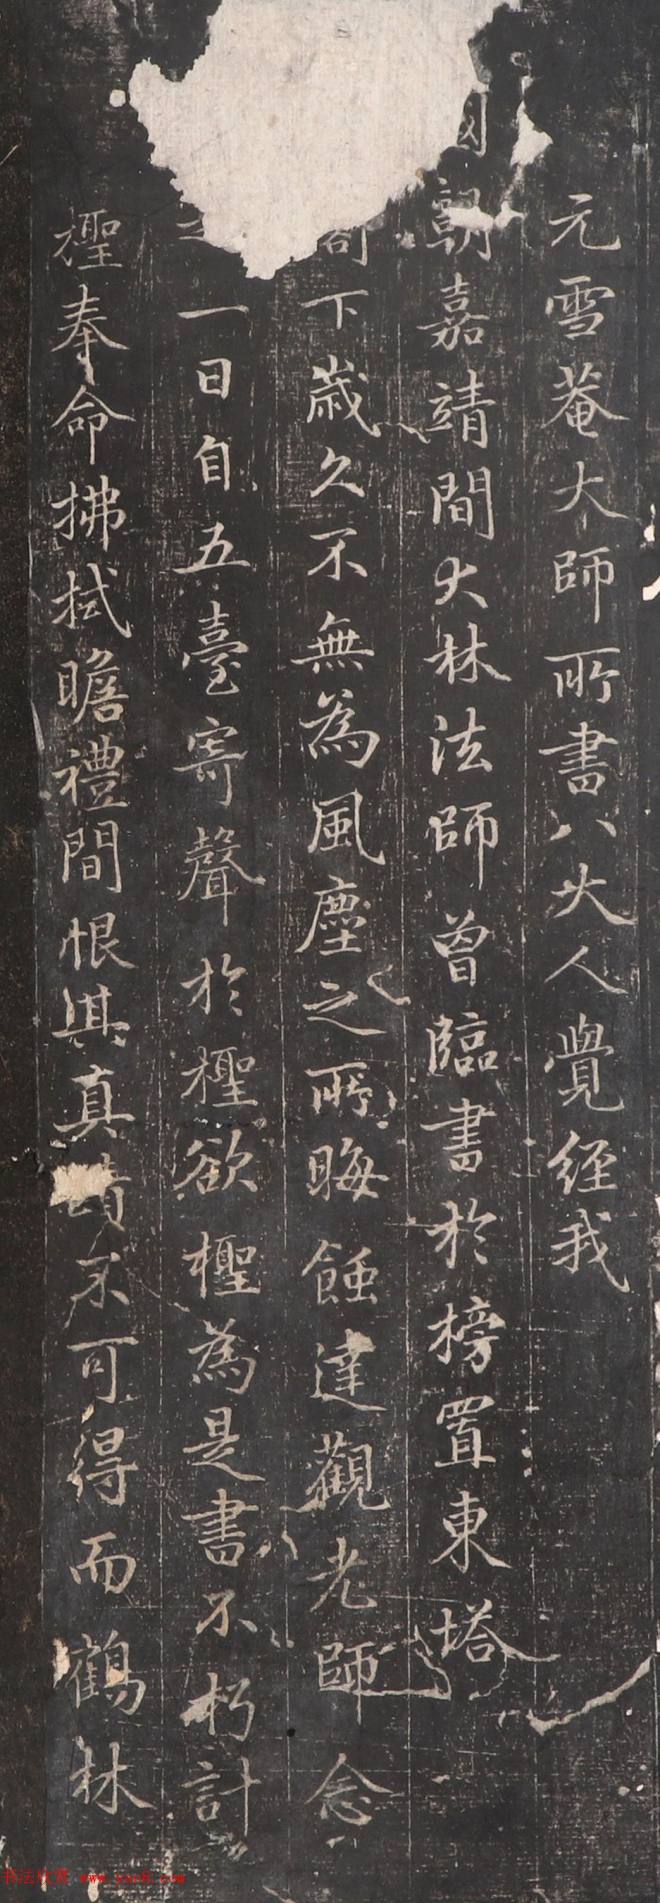 元雪菴大師所書八大人覺經我
國朝嘉靖間大林法師曾臨書於榜置東塔
下歲久不無為風塵之所晦蝕達觀老師念
之一日自五臺寄聲於檉欲檉為是書不朽計
檉奉命拂拭瞻禮間恨其真蹟不可得而鶴林
书法欣赏 www.yac8.com